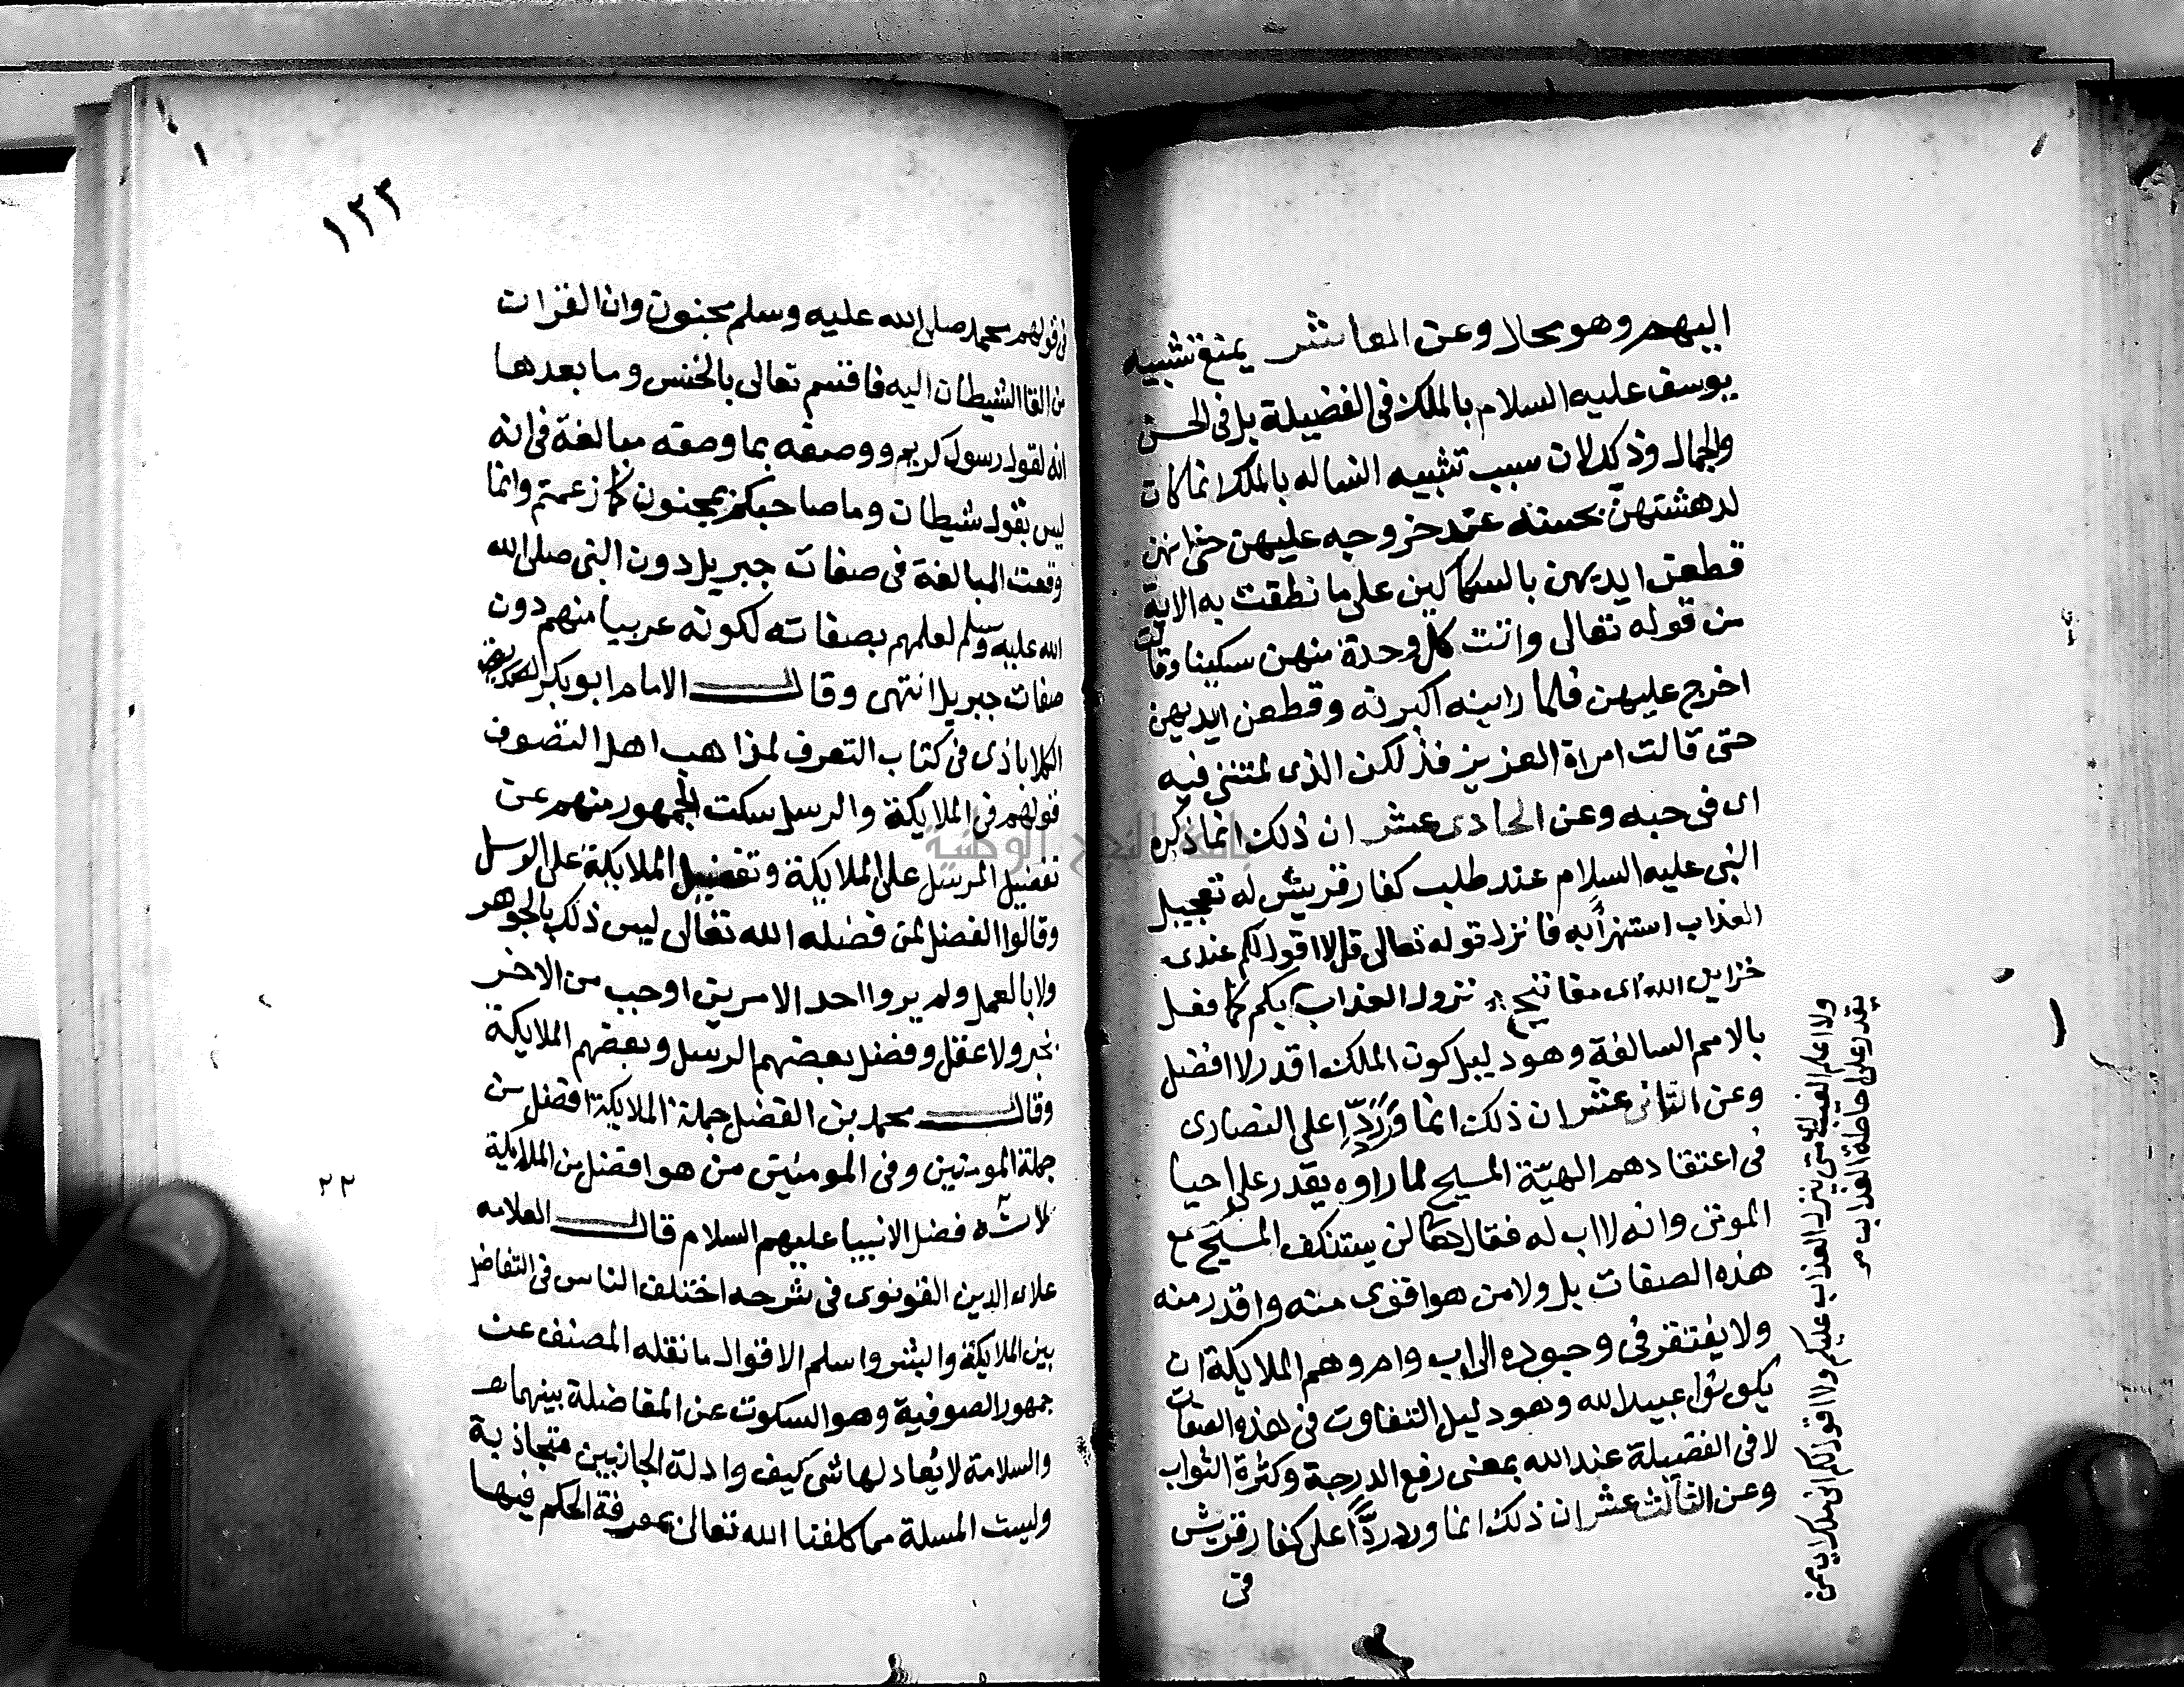 اليهم وهو محال وعن العاشر يمنع تشبيه
يوسف عليه السلام بالملك في الفضيلة بل في الحسن
والجمال وذلك لان سبب تشبيه النسا له بالملك انما كان
لدهشتهن بحسنه عند خروجه عليهن حتى انهن
قطعن ايديهن بالسكاكين على ما نطقت به الاية
من قوله تعالى واتت كل وحدة منهن سكينا وقالت
اخرج عليهن فلما راينه اكبرنه وقطعن ايديهن
حتى قالت امراة العزيز فذلكن الذى لمتننى فيه
اى فى حبه وعن الحادى عشر ان ذلك انما ذكره
النبى عليه السلام عند طلب كفار قريش له تعجيل
العذاب استهزأ به فانزل قوله تعالى قل لا اقول لكم عندى
خزاين الله اى مفاتيح نزول العذاب بكم كما فعل
بالامم السالفة وهو دليل كون الملك اقدر لا افضل
وعن الثانى عشر ان ذلك انما ورد ردّا على النصارى
فى اعتقادهم الهيّة المسيح لما راوه يقدر على احيا
الموتى وانه لا اب له فقال لهم لن يستنكف المسيح مع
هذه الصفات بل ولا من هو اقوى منه واقدر منه
ولا يفتقر فى وجوده الى اب وام وهم الملايكة ان
يكونوا عبيدا لله وهو دليل التفاوت فى هذه الصفات
لا فى الفضيلة عند الله بمعنى رفع الدرجة وكثرة الثواب
وعن الثالث عشر ان ذلك انما ورد ردّا على كفار قريش
فى
ولا اعلم الغيب متى ينزل العذاب عليكم ولا اقول لكم انى ملك
يقدر على احاطة العذاب
١٢٣
فى قولهم محمد صلى الله عليه وسلم مجنون وان القران
من القا الشيطان اليه فاقسم تعالى بالخنس وما بعدها
انه لقول رسول كريم ووصفه بما وصفه مبالغة فى انه
ليس بقول شيطان وما صاحبكم بمجنون كما زعمتم وانما
وقعت المبالغة فى صفات جبريل دون النبى صلى الله
الله عليه وسلم لعلمهم بصفاته لكونه عربيا منهم دون
صفات جبريل انتهى وقال الامام ابو بكر
الكلاباذى فى كتاب التعرف لمذاهب اهل التصوف
قولهم فى الملايكة والرسل سكت الجمهور منهم عن
تفضيل الرسل على الملايكة وتفضيل الملايكة على الرسل
وقالوا الفضل لمن فضله الله تعالى ليس ذلك بالجوهر
ولا بالعمل ولم يروا احد الامرين اوجب من الاخر
بخبر ولا عقل وفضل بعضهم الرسل وبعضهم الملايكة
وقال محمد بن الفضل جملة الملايكة افضل من
جملة المومنين وفى المومنين من هو افضل من الملايكة
فضل الانبيا عليهم السلام قال العلامه
علاء الدين القونوى فى شرحه اختلف الناس فى التفاضل
بين الملايكة والبشر واسلم الاقوال ما نقله المصنف عن
جمهور الصوفية وهو السكوت عن المفاضلة بينهما
والسلامة لا يعادلها شى كيف وادلة الجانبين متجاذبة
وليست المسلة مما كلفنا الله تعالى بمعرفة الحكم فيها
٢٢